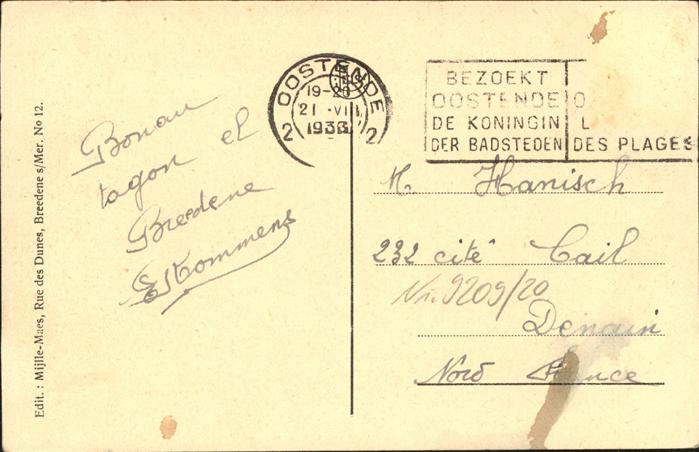 Edit. : Mijlle-Maes, Rue des Dunes, Breedene s/Mer. No 12.
OOSTENDE
19-20
21 VII
1933
2 2
BEZOEKT
OOSTENDE O
DE KONINGIN L
DER BADSTEDEN DES PLAGES
Bonau
tagon et
Bredene
M Hanisch
232 cité Cail
9209/20
Denain
Nord France